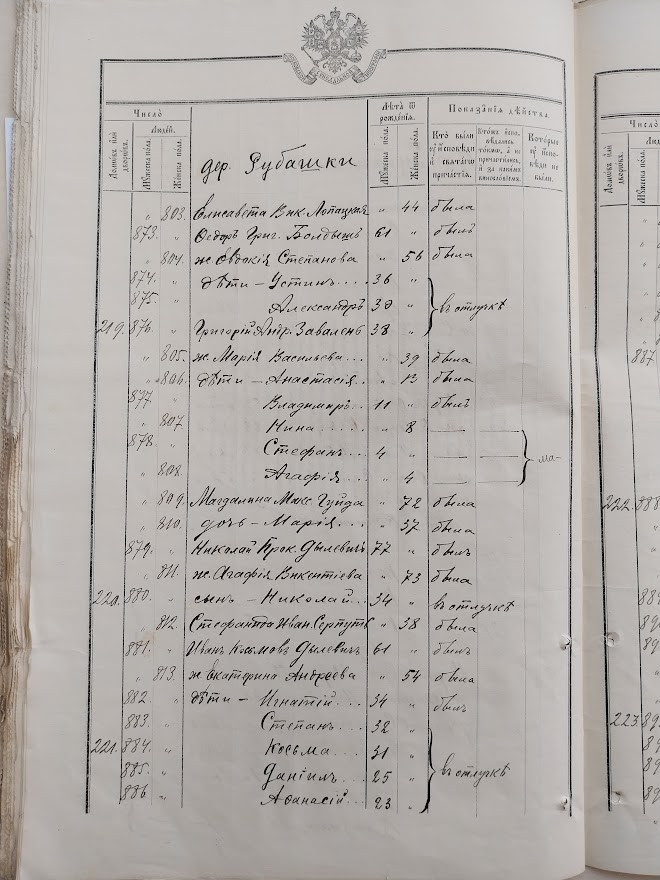 Число̀
Лю́дей.
Домо́въ и҆лѝ дворо́въ.
Мꙋ́жеска по́ла.
Же́нска по́ла.
дер. Рубашки
Лѣ́та ѿ рожде́нїѧ.
Мꙋ́жеска по́ла.
Же́нска по́ла.
Показа̑нїѧ дѣ́йства
Кто̀ бы́ли ᲂу҆ и҆́сповѣди и҆ свѧта́гѡ прича́стїѧ.
Кото́рые ᲂу҆ и҆́сповѣди не бы́ли.
„ 803. Елисавета Вик. Лопацкая „ 44 была
873. „ Ѳедоръ Григ. Болдышъ 61 „ былъ
„ 804. ж. Евдокія Степанова „ 56 была
874. „ дѣти – Устинъ.... 36 „
875. „ Александръ 30 „ } въ отлучкѣ
219. 876. „ Григорій Андр. Завалень 38 „
„ 805. ж. Марія Васильева... „ 39 была
„ 806. дѣти – Анастасія.. „ 13 была
877. „ Владимиръ.. 11 „ былъ
„ 807. Нина..... „ 8 — —
878. „ Стефанъ... 4 „ — — } ма–
„ 808. Агафія... „ 4 — —
„ 809. Магдалина Макс. Гуйда „ 72 была
„ 810. дочь – Марія.... „ 37 была
879. „ Николай Прок. Дылевичъ 77 „ былъ
„ 811. ж. Агафія Викентіева „ 73 была
220. 880. „ сынъ – Николай... 34 „ въ отлучкѣ
„ 812. Стефанида Иван. Серпутъ „ 38 была
881. „ Иванъ Косьмовъ Дылевичъ 61 „ былъ
„ 813. ж. Екатерина Андреева „ 54 была
882. „ дѣти – Игнатій... 34 „ былъ
883. „ Степанъ... 32 „
221. 884. „ Косьма.... 31 „
885. „ Даніилъ... 25 „ } въ отлучкѣ
886 „ Аѳанасій... 23 „
Число̀
Мꙋ́жеска по́ла.
887
222. 888
223.